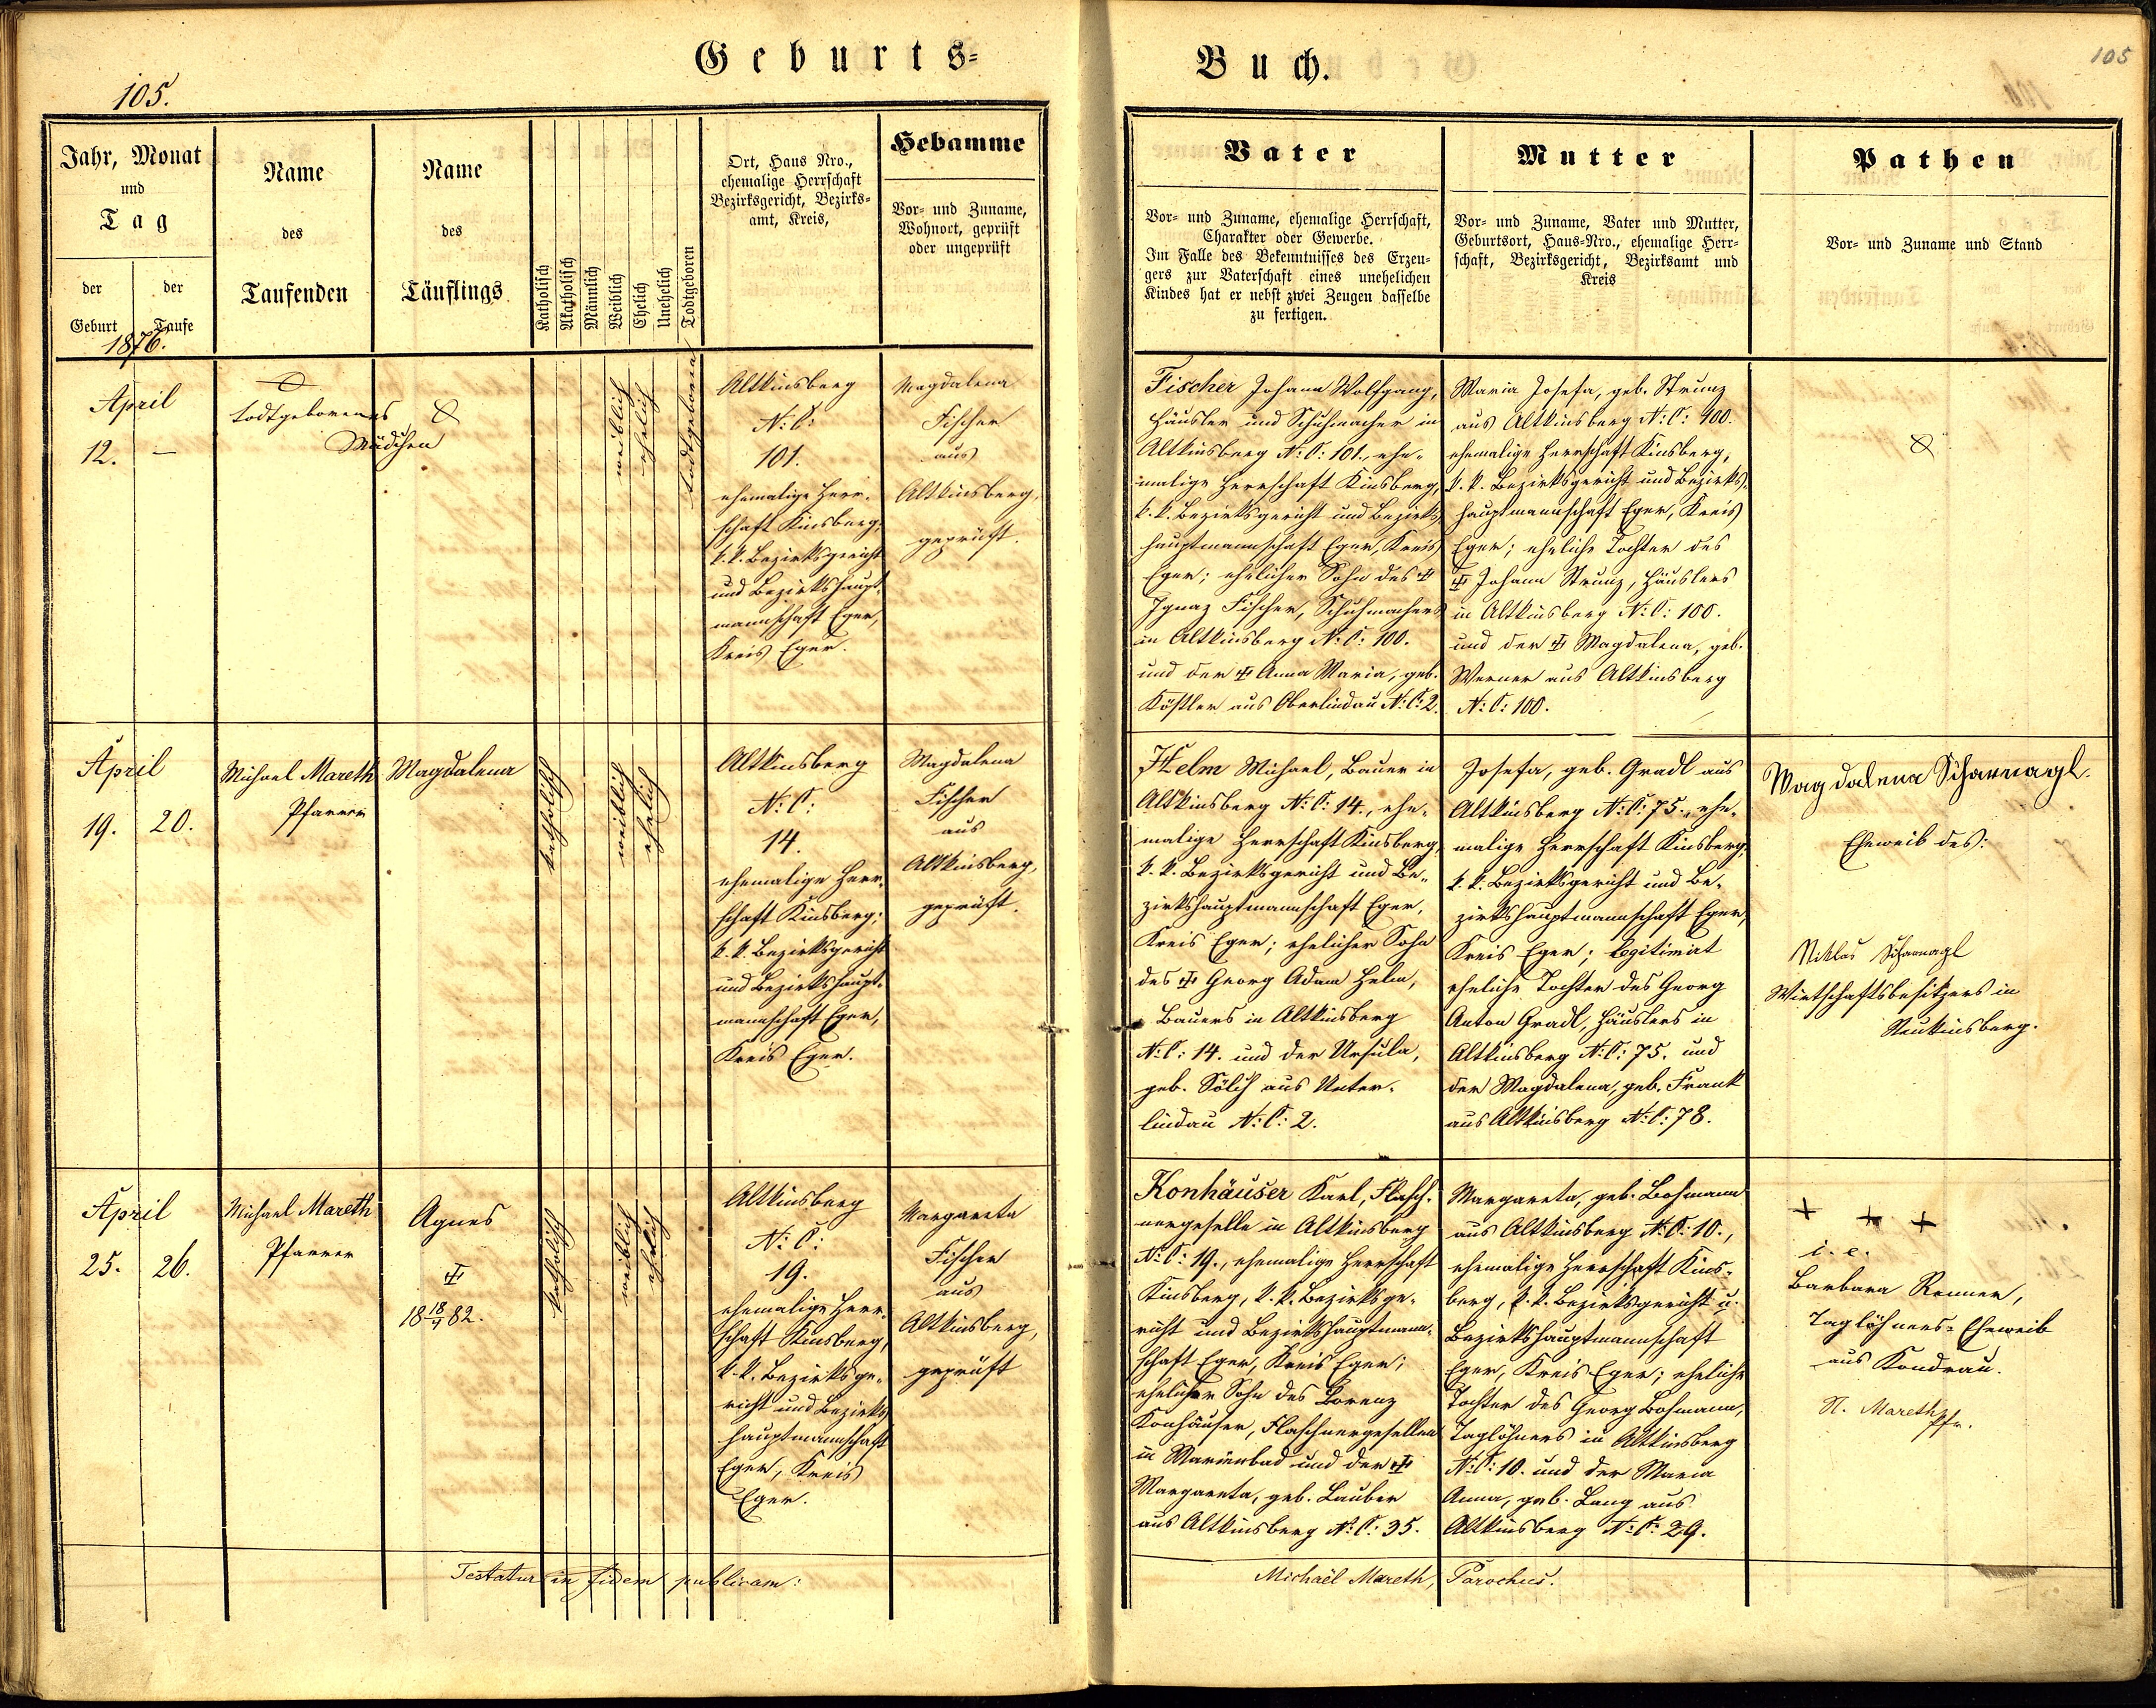 Geburts=
Buch.
105.
105
Jahr, Monat
und
Tag
der
Geburt
der
Taufe
1876.
Name
des
Taufenden
Name
des
Täuflings
Katholisch
Akatholisch
Männlich
Weiblich
Ehelich
Unehelich
Todtgeboren
Ort, Haus Nro.,
ehemalige Herrschaft
Bezirksgericht, Bezirks=
amt, Kreis,
Hebamme
Vor= und Zuname,
Wohnort, geprüft
oder ungeprüft
Vater
Vor= und Zuname, ehemalige Herrschaft,
Charakter oder Gewerbe.
Im Falle des Bekenntnisses des Erzeu=
gers zur Vaterschaft eines unehelichen
Kindes hat er nebst zwei Zeugen dasselbe
zu fertigen.
Mutter
Vor= und Zuname, Vater und Mutter,
Geburtsort, Haus=Nro., ehemalige Herr=
schaft, Bezirksgericht, Bezirksamt und
Kreis
Pathen
Vor= und Zuname und Stand
April
12. –
todtgeborenes
Mädchen
weiblich
ehelich
todtgeboren
Altkinsberg
N: C:
101.
ehemalige Herr=
schaft Kinsberg,
k. k. Bezirksgericht
und Bezirkshaupt=
mannschaft Eger,
Kreis Eger.
Magdalena
Fischer
aus
Altkinsberg,
geprüft.
Fischer Johann Wolfgang,
Häusler und Schuhmacher in
Altkinsberg N: C: 101., ehe=
malige Herrschaft Kinsberg,
k. k. Bezirksgericht und Bezirks=
hauptmannschaft Eger, Kreis
Eger; ehelicher Sohn des ♰
Ignaz Fischer, Schuhmachers
in Altkinsberg N: C: 100.
und der ♰ Anna Maria, geb.
Köstler aus Oberlindau N: C: 2.
Maria Josefa, geb. Strunz
aus Altkinsberg N: C: 100.
ehemalige Herrschaft Kinsberg,
k. k. Bezirksgericht und Bezirks=
hauptmannschaft Eger, Kreis
Eger; eheliche Tochter des
♰ Johann Strunz, Häuslers
in Altkinsberg N: C: 100.
und der ♰ Magdalena, geb.
Werner aus Altkinsberg
N: C: 100.
April
19. 20.
Michael Mareth
Pfarrer
Magdalena
katholisch
weiblich
ehelich
Altkinsberg
N: C:
14.
ehemalige Herr=
schaft Kinsberg;
k. k. Bezirksgericht
und Bezirkshaupt=
mannschaft Eger,
Kreis Eger.
Magdalena
Fischer
aus
Altkinsberg,
geprüft.
Helm Michael, Bauer in
Altkinsberg N: C: 14., ehe=
malige Herrschaft Kinsberg,
k. k. Bezirksgericht und Be=
zirkshauptmannschaft Eger,
Kreis Eger; ehelicher Sohn
des ♰ Georg Adam Helm,
Bauers in Altkinsberg
N: C: 14. und der Ursula,
geb. Sölch aus Unter=
lindau N: C: 2.
Josefa, geb. Gradl aus
Altkinsberg N: C: 75. ehe=
malige Herrschaft Kinsberg,
k. k. Bezirksgericht und Be=
zirkshauptmannschaft Eger,
Kreis Eger; legitimirt
eheliche Tochter des Georg
Anton Gradl, Häuslers in
Altkinsberg N: C: 75. und
der Magdalena, geb. Frank
aus Altkinsberg N: C: 78.
Magdalena Scharnagl.
Eheweib des:
Niklas Scharnagl
Wirtschaftsbesitzers in
Neukinsberg.
April
25. 26.
Michael Mareth
Pfarrer
Agnes
♰
18 18/4 82.
katholisch
weiblich
ehelich
Altkinsberg
N: C:
19.
ehemalige Herr=
schaft Kinsberg,
k. k. Bezirksge=
richt und Bezirks=
hauptmannschaft
Eger, Kreis
Eger.
Margareta
Fischer
aus
Altkinsberg,
geprüft
Konhäuser Karl, Flasch=
nergeselle in Altkinsberg
N: C: 19., ehemalige Herrschaft
Kinsberg, k. k. Bezirksge=
richt und Bezirkshauptmann=
schaft Eger, Kreis Eger;
ehelicher Sohn des Lorenz
Konhäuser, Flaschnergesellen
in Marienbad und der ♰
Margareta, geb. Lauber
aus Altkinsberg N: C: 35.
Margareta, geb. Bohmann
aus Altkinsberg N: C: 10.,
ehemalige Herrschaft Kins=
berg, k. k. Bezirksgericht u.
Bezirkshauptmannschaft
Eger, Kreis Eger; eheliche
Tochter des Georg Bohmann,
Taglöhners in Altkinsberg
N: C: 10. und der Maria
Anna, geb. Lang aus
Altkinsberg N: C: 29.
+ + +
i. e.
Barbara Renner,
Taglöhners=Eheweib
aus Kondrau.
M. Mareth
Pfr.
Testatur in fidem publicam:
Michaël Mareth, Parochus.